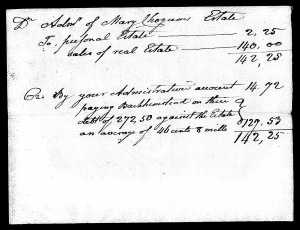 Dr Admr of Mary Thozum Estate
To personal Estate 2,25
sales of real Estate 140,00
142,25
Cr By your Administration account 14.72
paying on their
debt of 272.50 against the Estate
an average of 46 cents 8 mills 127.53
142,25